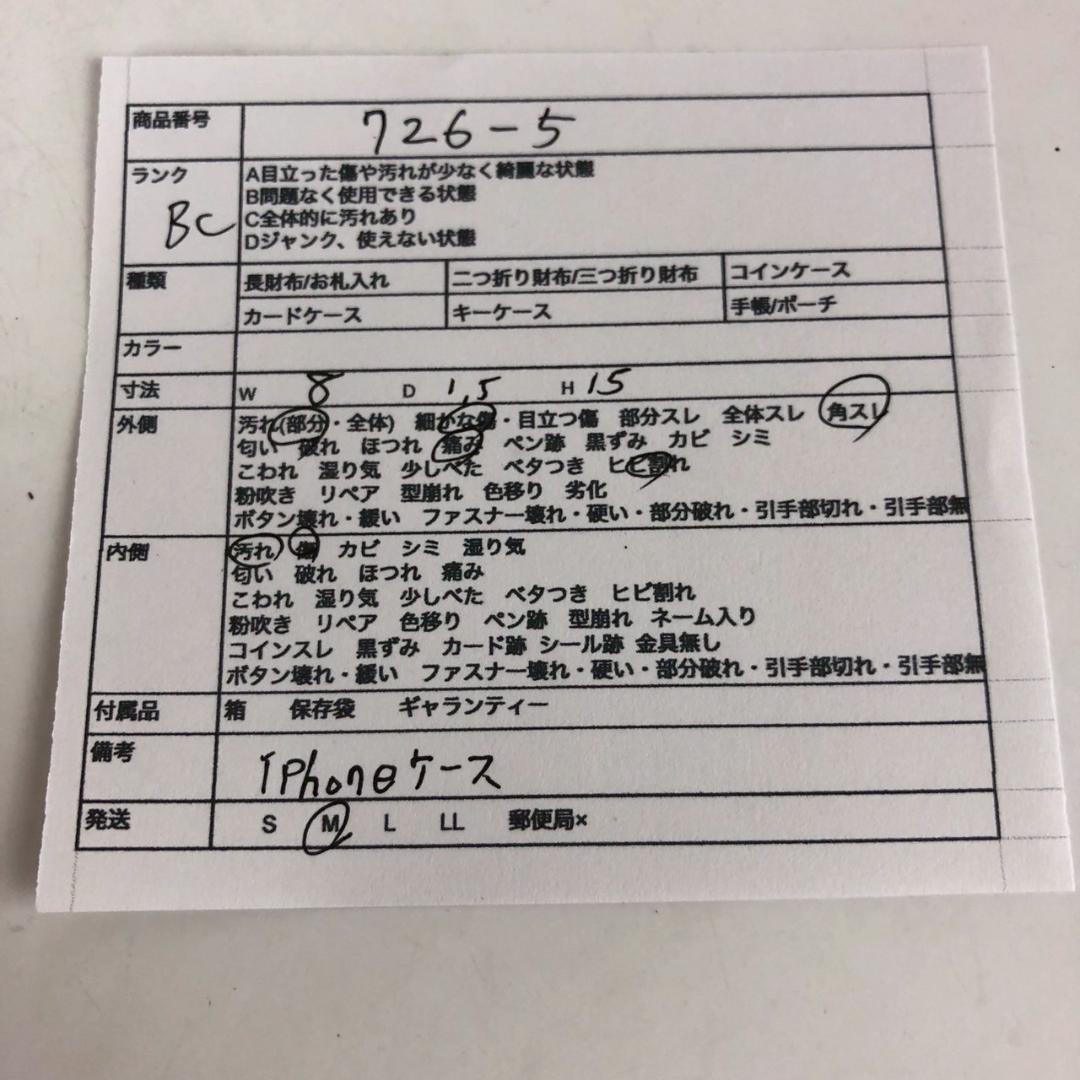 商品番号 726-5
ランク BC
A目立った傷や汚れが少なく綺麗な状態
B問題なく使用できる状態
C全体的に汚れあり
Dジャンク、使えない状態
種類 長財布/お札入れ 二つ折り財布/三つ折り財布 コインケース
カードケース キーケース 手帳/ポーチ
カラー
寸法 W 8 D 1,5 H 15
外側 汚れ(部分・全体) 細かな傷・目立つ傷 部分スレ 全体スレ 角スレ
匂い 破れ ほつれ 痛み ペン跡 黒ずみ カビ シミ
こわれ 湿り気 少しべた ベタつき ヒビ割れ
粉吹き リペア 型崩れ 色移り 劣化
ボタン壊れ・緩い ファスナー壊れ・硬い・部分破れ・引手部切れ・引手部無
内側 汚れ 傷 カビ シミ 湿り気
匂い 破れ ほつれ 痛み
こわれ 湿り気 少しべた ベタつき ヒビ割れ
粉吹き リペア 色移り ペン跡 型崩れ ネーム入り
コインスレ 黒ずみ カード跡 シール跡 金具無し
ボタン壊れ・緩い ファスナー壊れ・硬い・部分破れ・引手部切れ・引手部無
付属品 箱 保存袋 ギャランティー
備考 iPhoneケース
発送 S M L LL 郵便局×